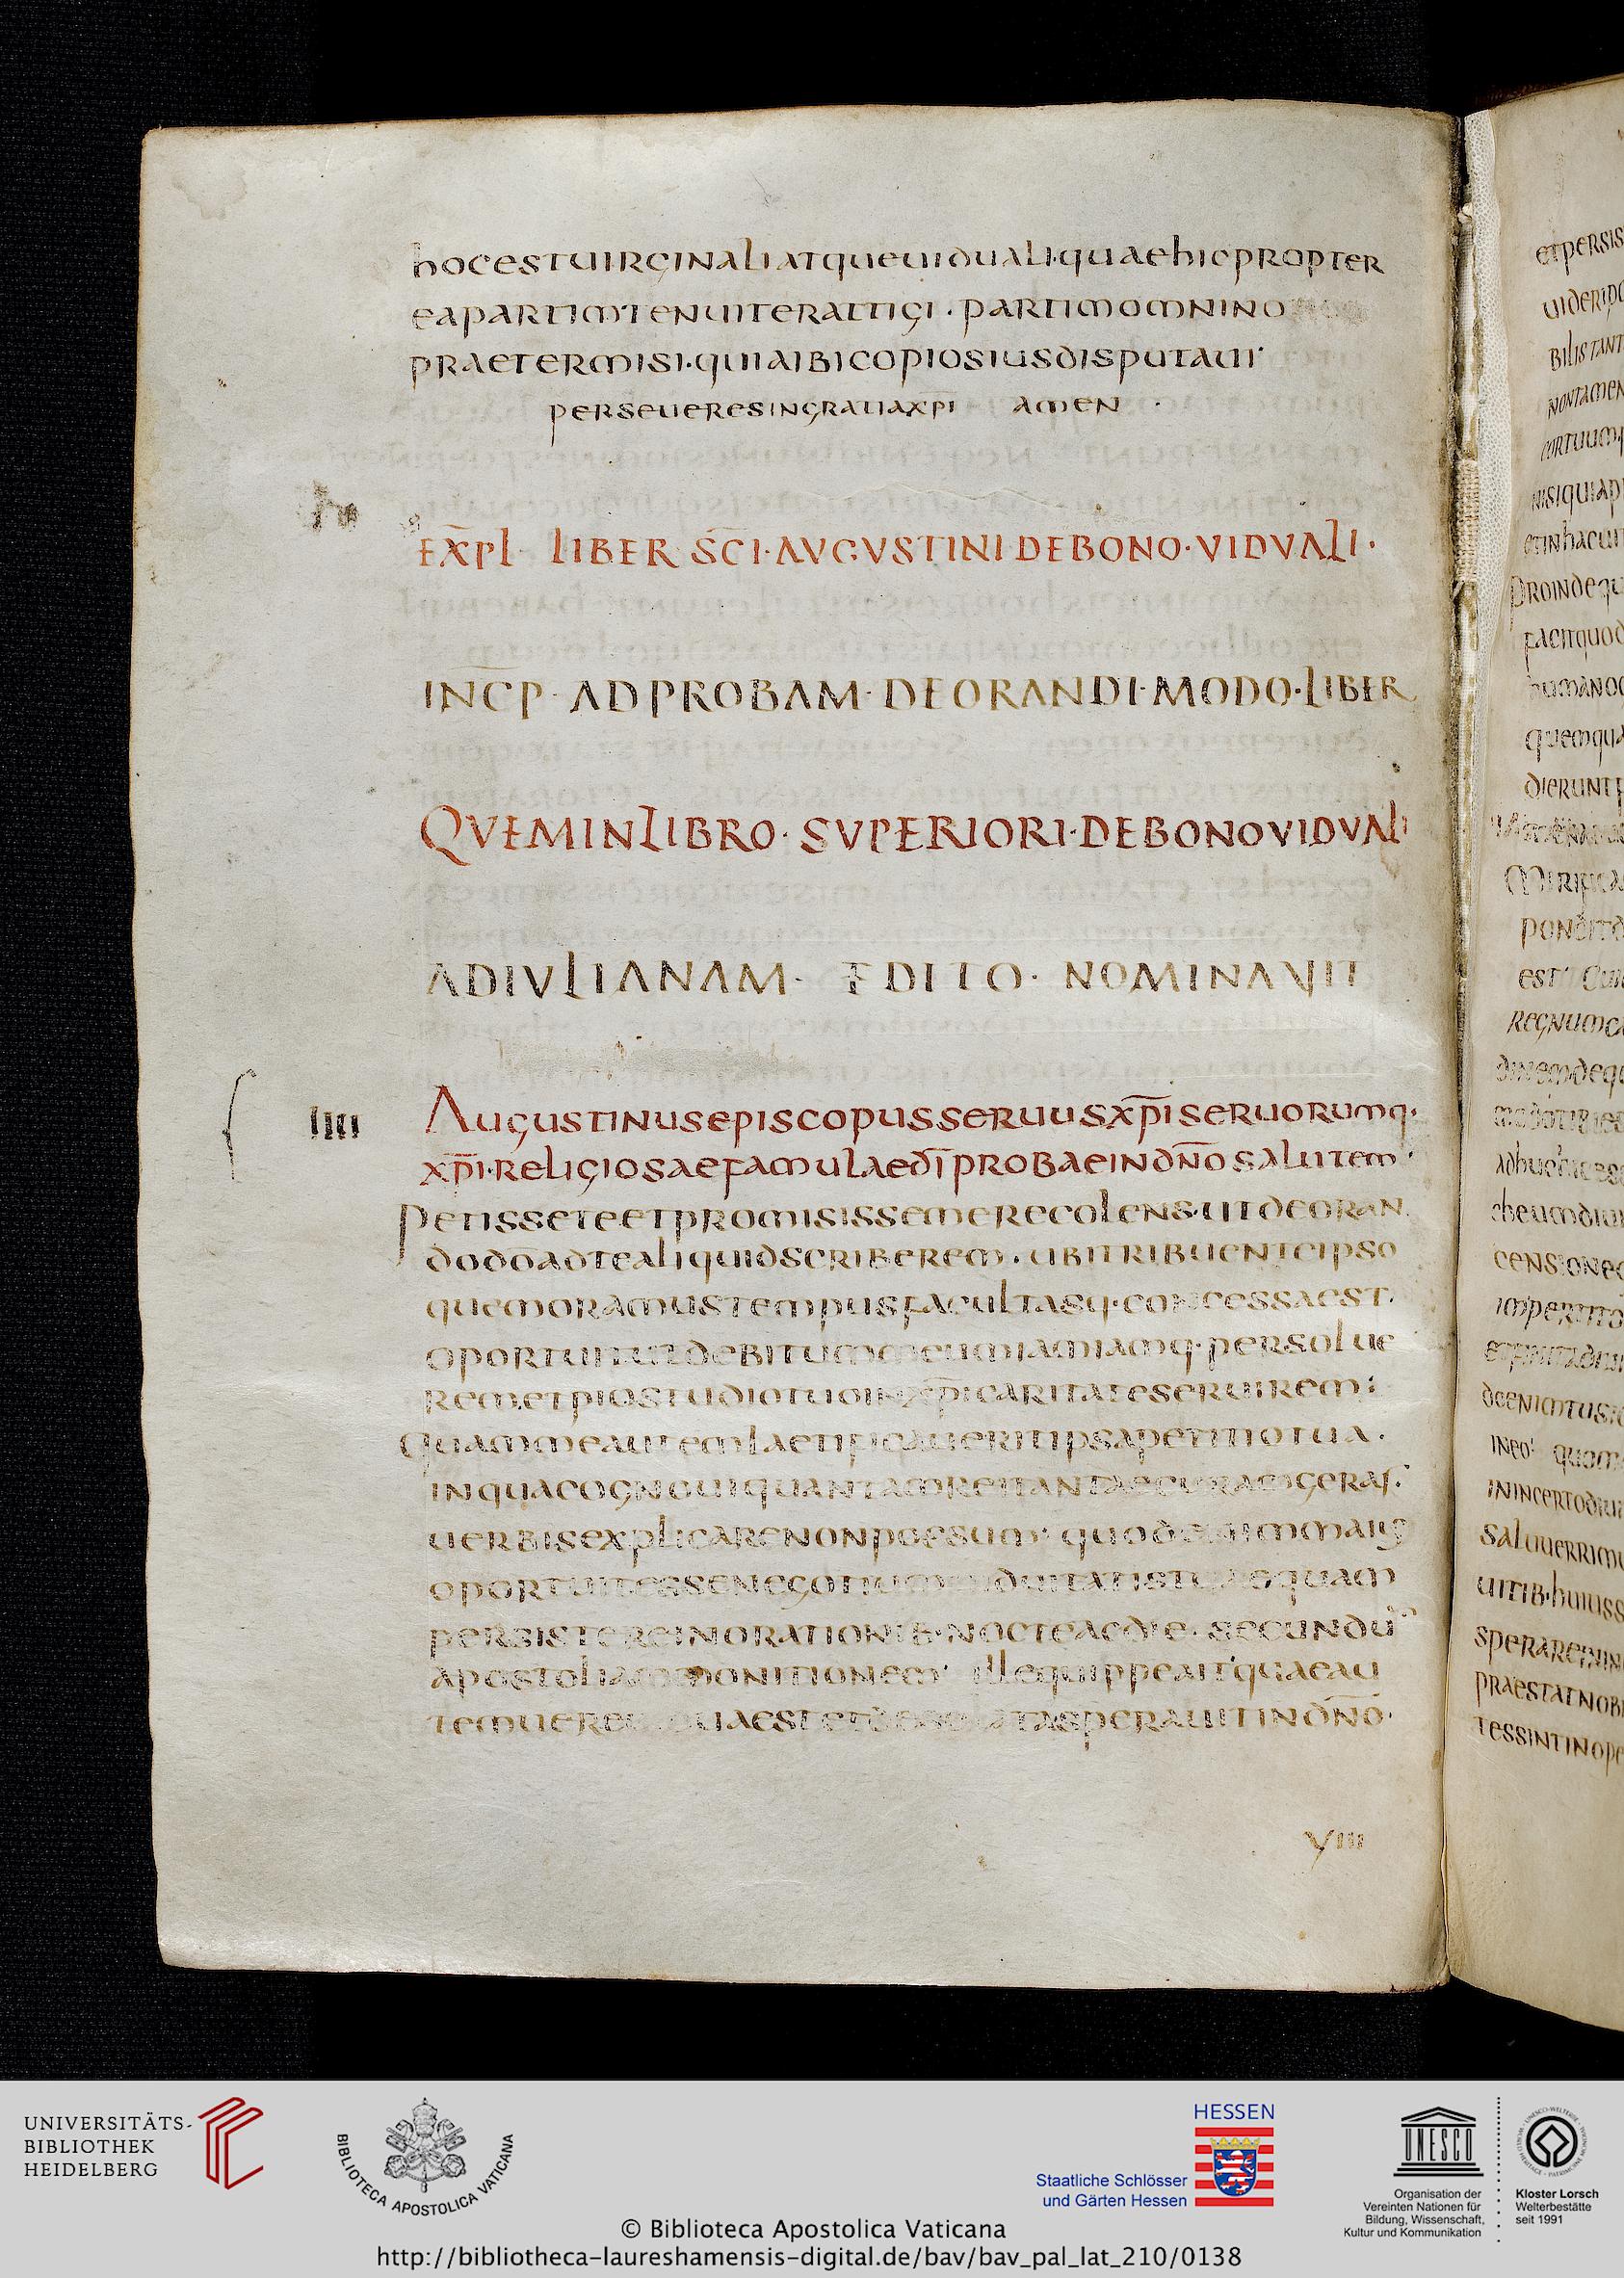 hocestuirginaliatqueuiduali·quaehicpropter
eapartimtenuiterattigi · partimomnino
praetermisi·quiaibicopiosiusdisputaui·
perseueresingratiaxp̄i amen ·
EXP̄L LIBER SC̄I·AUGUSTINI DEBONO·VIDVALI·
INC̄P· ADPROBAM· DEORANDI·MODO·LIBER
QVEMINLIBRO· SVPERIORI·DEBONOVIDVALI
ADIVLIANAM· EDITO· NOMINAVIT
IIII
Augustinusepiscopusseruusxp̄iseruorumq·
xp̄i·religiosaefamulaedīprobaeindn̄osalutem·
Petisseteetpromisissemerecolens·utdeoran
dodoadtealiquidscriberem · ubitribuenteipso
quemoramustempusfacultasq·concessaest·
oportuitutdebitummeumiamiamq·persolue
rem·etpiostudiotuoinxp̄icaritateseruirem:
Quammeautemlaetificaueritipsapetitiotua·
inquacognouiquantamreitantaecuramgeras·
uerbisexplicarenonpossum·
oportuitessenegotium
persistereinorationib·nocteacdie·secundū
apostoliammonitionem· illequippeait·quaeau
temuere
speravitindn̄o·
VIII
etpersis
uideri
bilistant
nontamen
cortuum
nisiquiap
etinhacui
Proindequ
facitquod
humanoc
quemqua
dierunt
Mirifica
pondtd
est· Cum
regnumc
adhuc
censionec
ineo· quom
inincerto
saluuerrimu
uitib·huiuss
sperare
praestatnobi
tessintinope
UNIVERSITÄTS-
BIBLIOTHEK
HEIDELBERG
BIBLIOTECA APOSTOLICA VATICANA
HESSEN
Staatliche Schlösser
und Gärten Hessen
UNESCO
Organisation der
Vereinten Nationen für
Bildung, Wissenschaft,
Kultur und Kommunikation
Kloster Lorsch
Welterbestätte
seit 1991
© Biblioteca Apostolica Vaticana
http://bibliotheca-laureshamensis-digital.de/bav/bav_pal_lat_210/0138